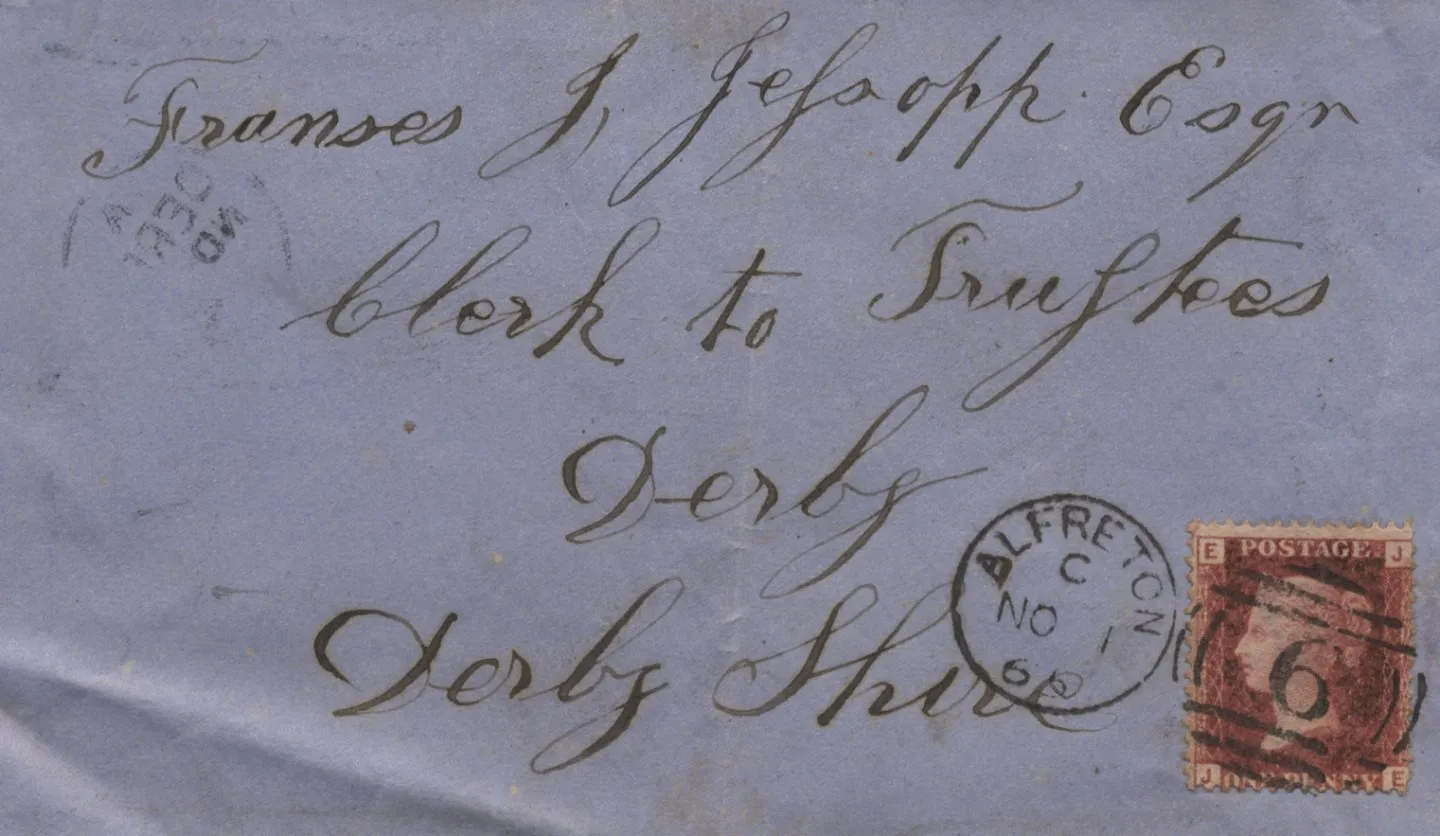 Franses J, Jessopp Esqr
Clerk to Trustees
Derby
Derby Shire
ALFRETON
C
NO 1
E POSTAGE J
6
J ONE PENNY E